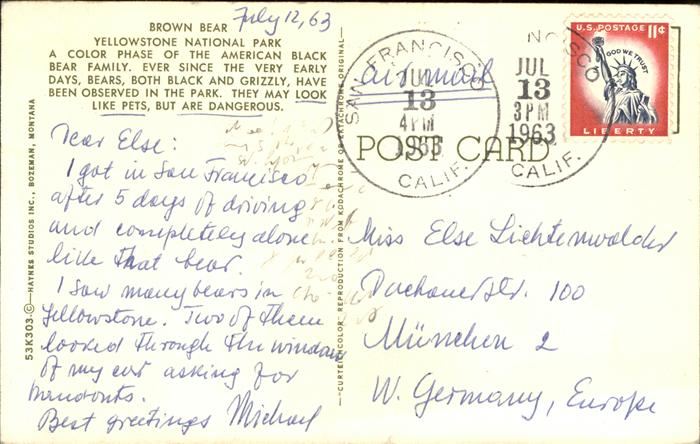 July 12, 63
BROWN BEAR
YELLOWSTONE NATIONAL PARK
A COLOR PHASE OF THE AMERICAN BLACK
BEAR FAMILY. EVER SINCE THE VERY EARLY
DAYS, BEARS, BOTH BLACK AND GRIZZLY, HAVE
BEEN OBSERVED IN THE PARK. THEY MAY LOOK
LIKE PETS, BUT ARE DANGEROUS.
Dear Else:
I got in San Francisco
after 5 days of driving
and completely alone
like that bear.
I saw many bears in
Yellowstone. Two of them
looked through the window
of my car asking for
handouts.
Best greetings Michael
53K303 ©—HAYNES STUDIOS INC., BOZEMAN, MONTANA
"CURTEICHCOLOR" REPRODUCTION FROM KODACHROME OR EKTACHROME ORIGINAL
airmail
SAN FRANCISCO
JUL
13
4 PM
1963
CALIF.
POST CARD
NCISCO
JUL
13
3 PM
1963
CALIF.
U.S. POSTAGE 11¢
IN GOD WE TRUST
LIBERTY
Miss Else Lichtenwalder
Dachauerstr. 100
München 2
W. Germany, Europe